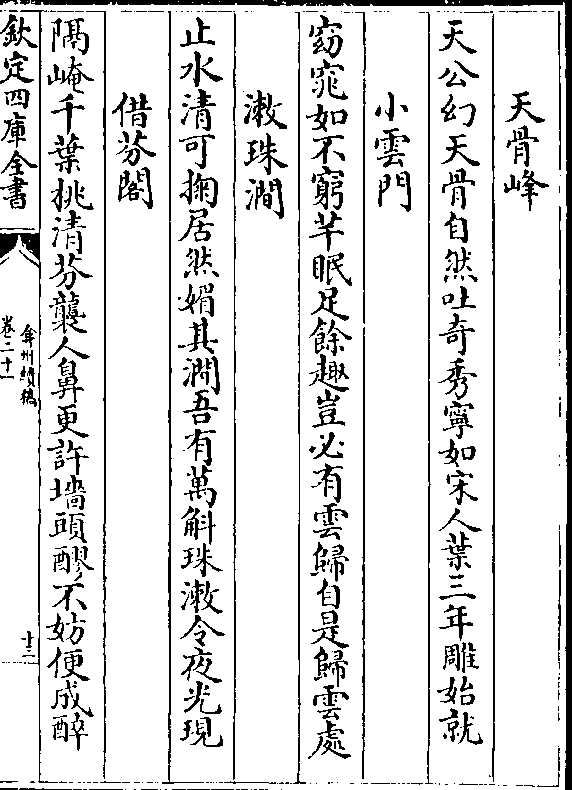 天骨峰
天公幻天骨自然吐奇秀寧如宋人葉三年雕始就
小雲門
窈窕如不窮芊眠足餘趣豈必有雲歸自是歸雲處
漱珠澗
止水清可掬居然媚其澗吾有萬斛珠漱令夜光現
借芬閣
隔崦千葉桃清芬襲人鼻更許墻頭醪不妨便成醉
欽定四庫全書
弇州續稿
卷二十一
十三